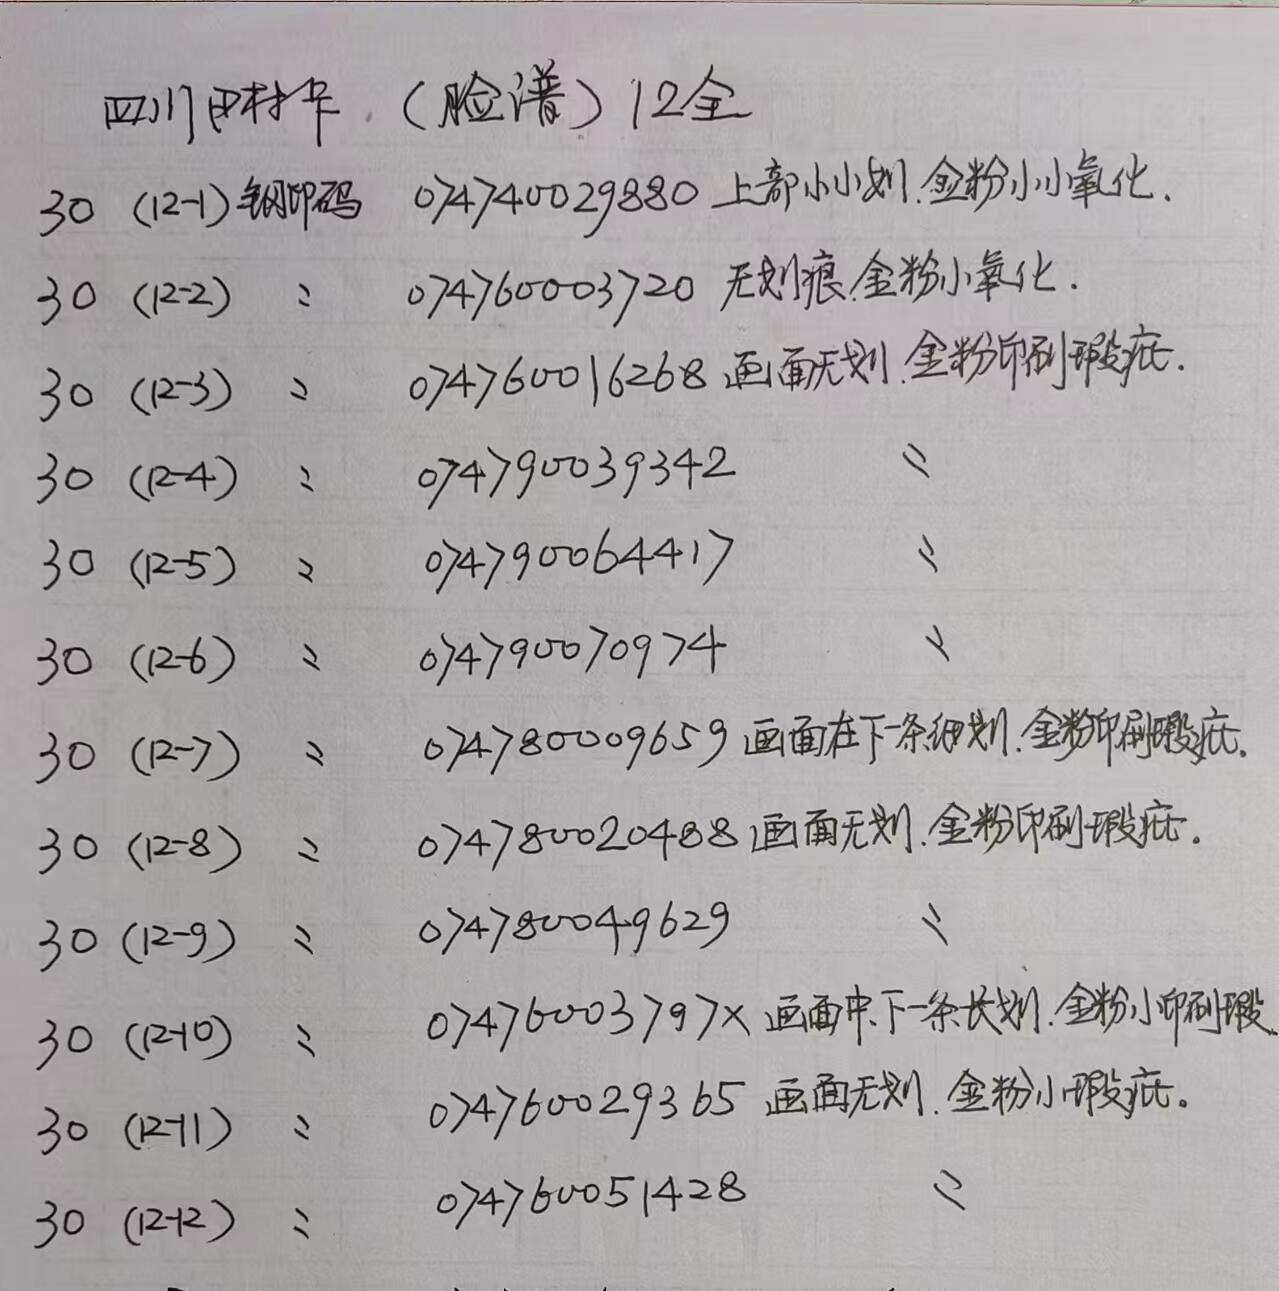 四川田村卡.（脸谱）12全
30 (12-1) 钢印码 074740029880 上部小小划.金粉小小氧化.
30 (12-2) 〃 074760003720 无划痕.金粉小氧化.
30 (12-3) 〃 074760016268 画面无划.金粉印刷瑕疵.
30 (12-4) 〃 074790039342 〃
30 (12-5) 〃 074790064417 〃
30 (12-6) 〃 074790070974 〃
30 (12-7) 〃 074780009659 画面在下一条细划.金粉印刷瑕疵.
30 (12-8) 〃 074780020488 画面无划.金粉印刷瑕疵.
30 (12-9) 〃 074780049629 〃
30 (12-10) 〃 07476003797X 画面中.下一条长划.金粉小印刷瑕
30 (12-11) 〃 074760029365 画面无划.金粉小瑕疵.
30 (12-12) 〃 074760051428 〃